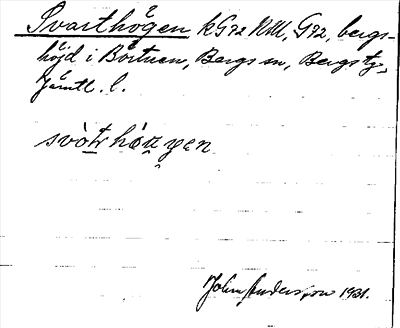 Svarthögen k G92 NM, G92, bergs-
höjd i Börtnen, Bergs sn, Bergs tg,
Jämtl. l.
svòtr hö̀u gen
John Anderson 1931.